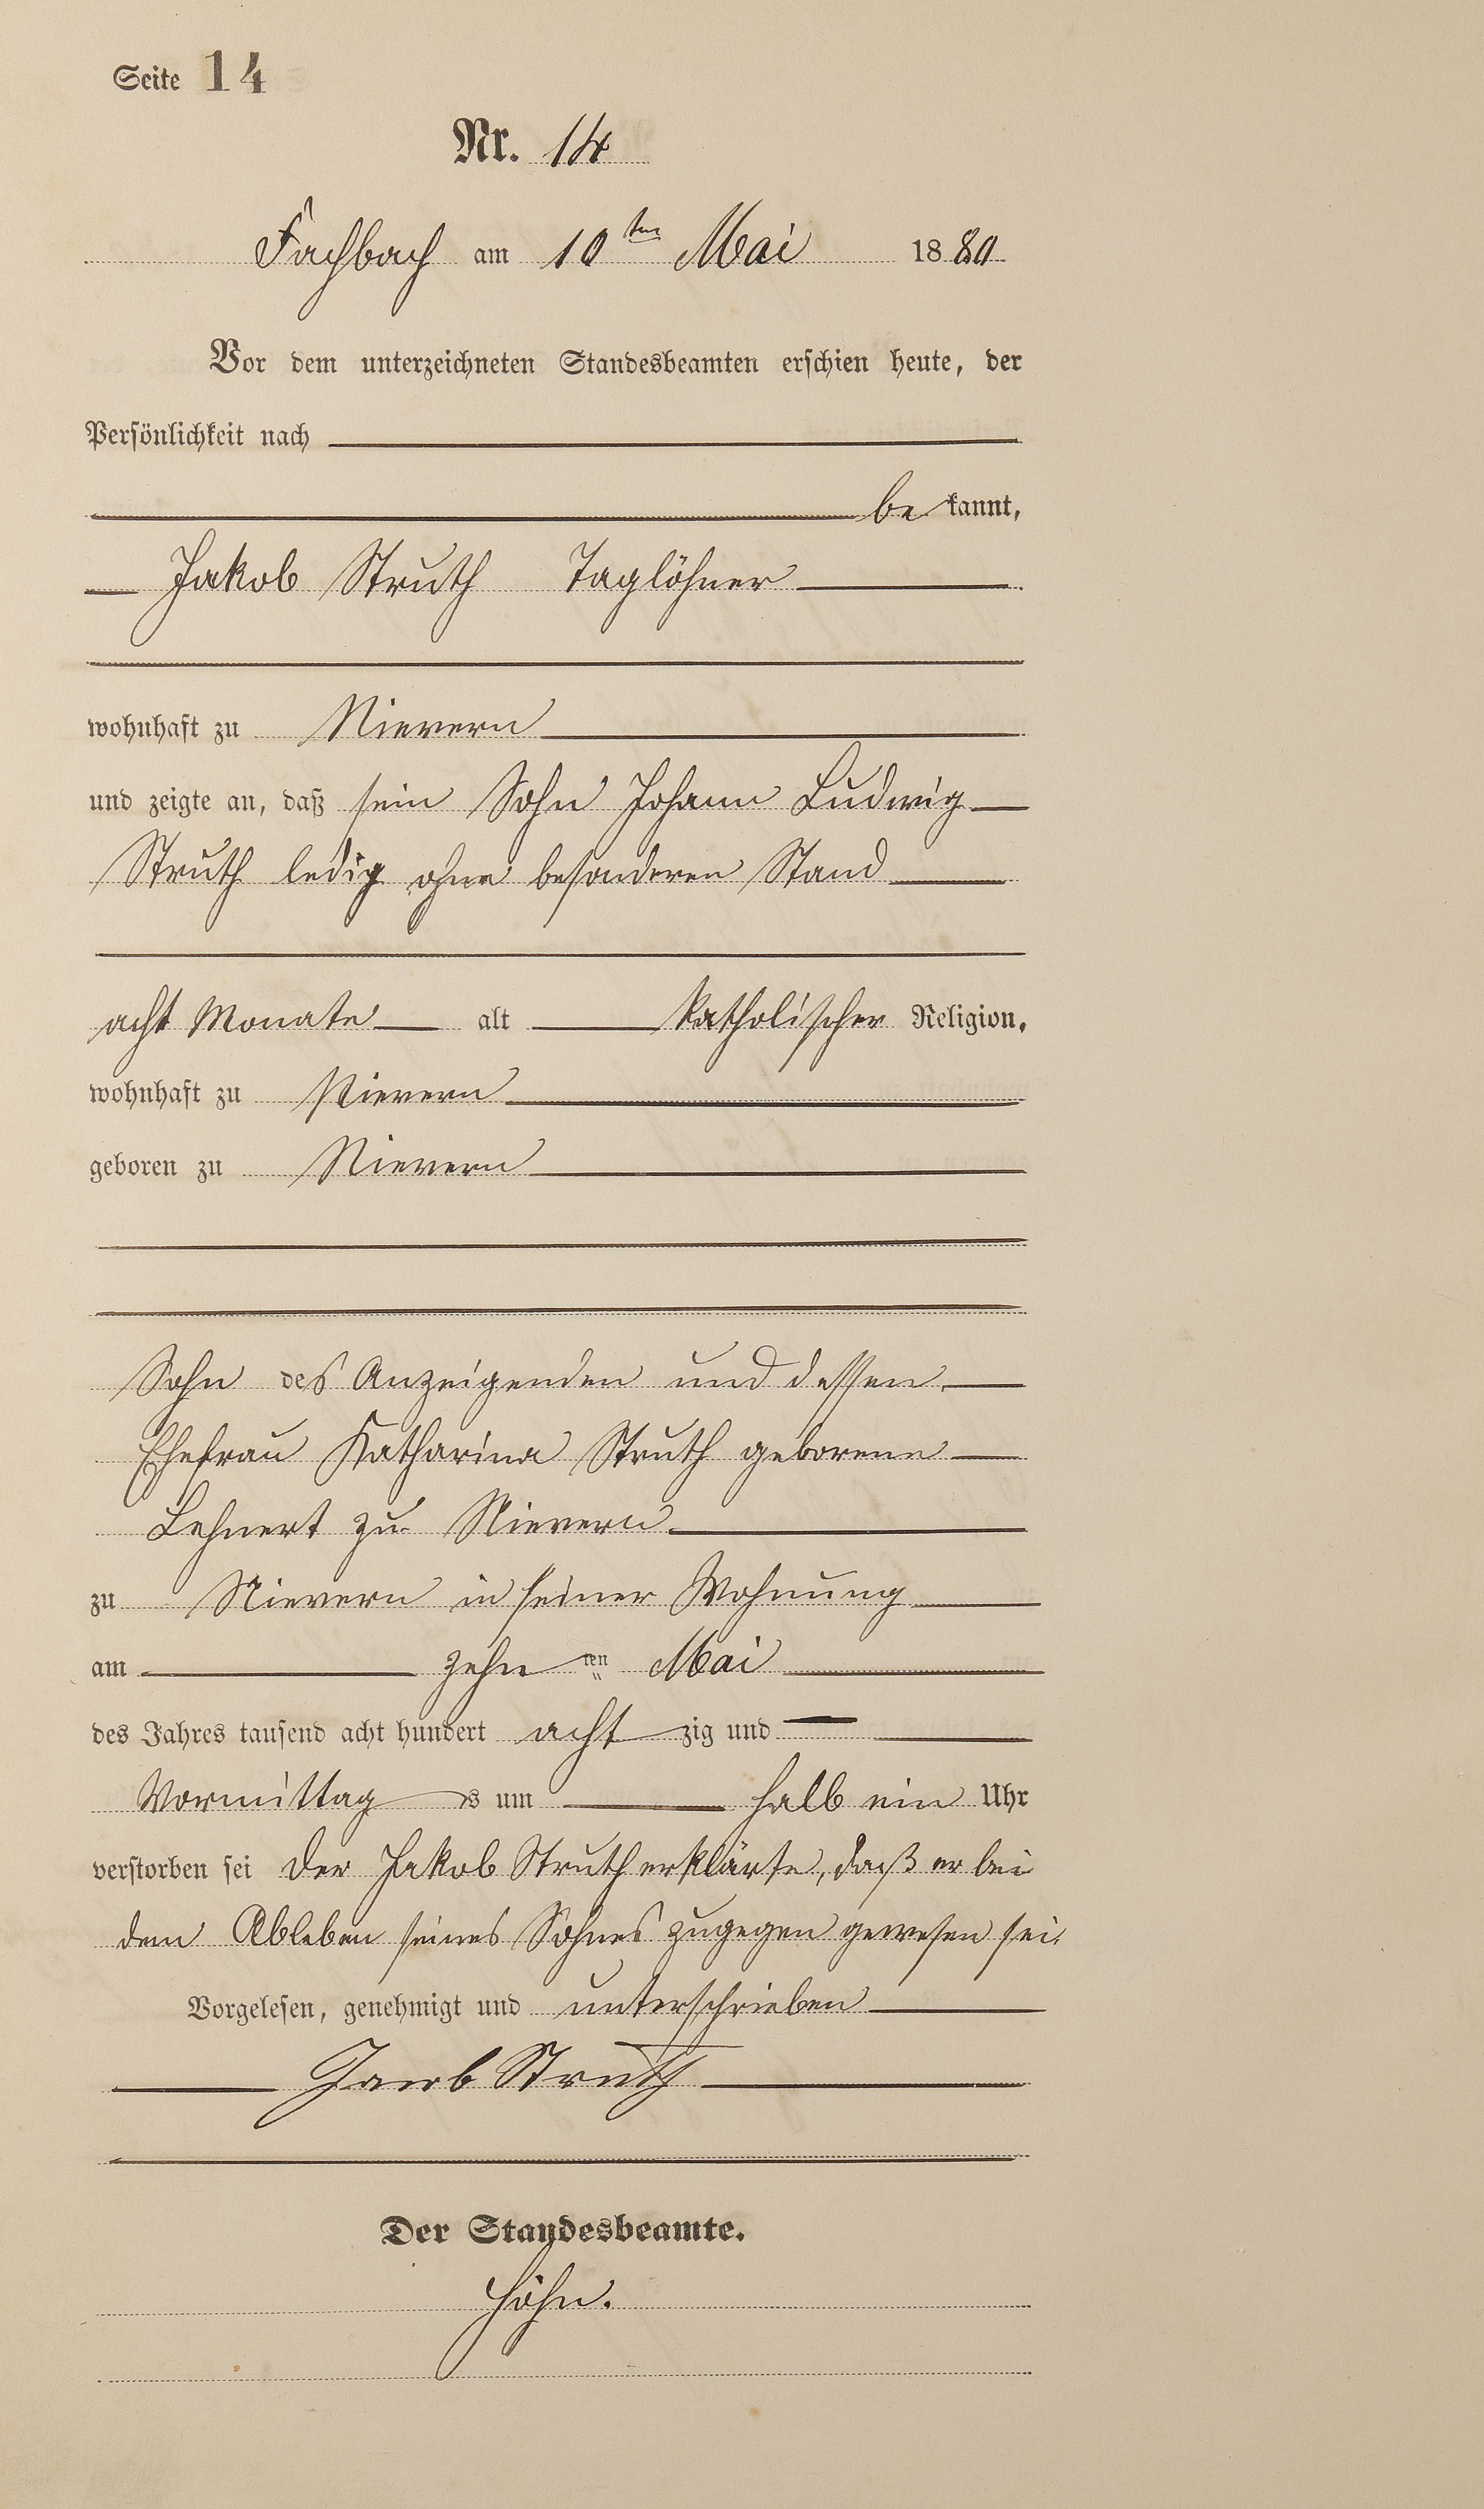 Seite 14
Nr. 14
Fachbach am 10ten Mai 1880
Vor dem unterzeichneten Standesbeamten erschien heute, der
Persönlichkeit nach
be kannt,
Jakob Struth Taglöhner
wohnhaft zu Nievern
und zeigte an, daß sein Sohn Johann Ludwig
Struth ledig ohne besonderen Stand
acht Monate alt katholischer Religion,
wohnhaft zu Nievern
geboren zu Nievern
Sohn des Anzeigenden und dessen
Ehefrau Katharina Struth geborene
Lehnert zu Nievern
zu Nievern in seiner Wohnung
am zehn ten Mai
des Jahres tausend acht hundert acht zig und
Vormittag s um halb ein Uhr
verstorben sei der Jakob Struth erklärte, daß er bei
dem Ableben seines Sohnes zugegen gewesen sei.
Vorgelesen, genehmigt und unterschrieben
Jacob Struth
Der Standesbeamte.
Höhn.